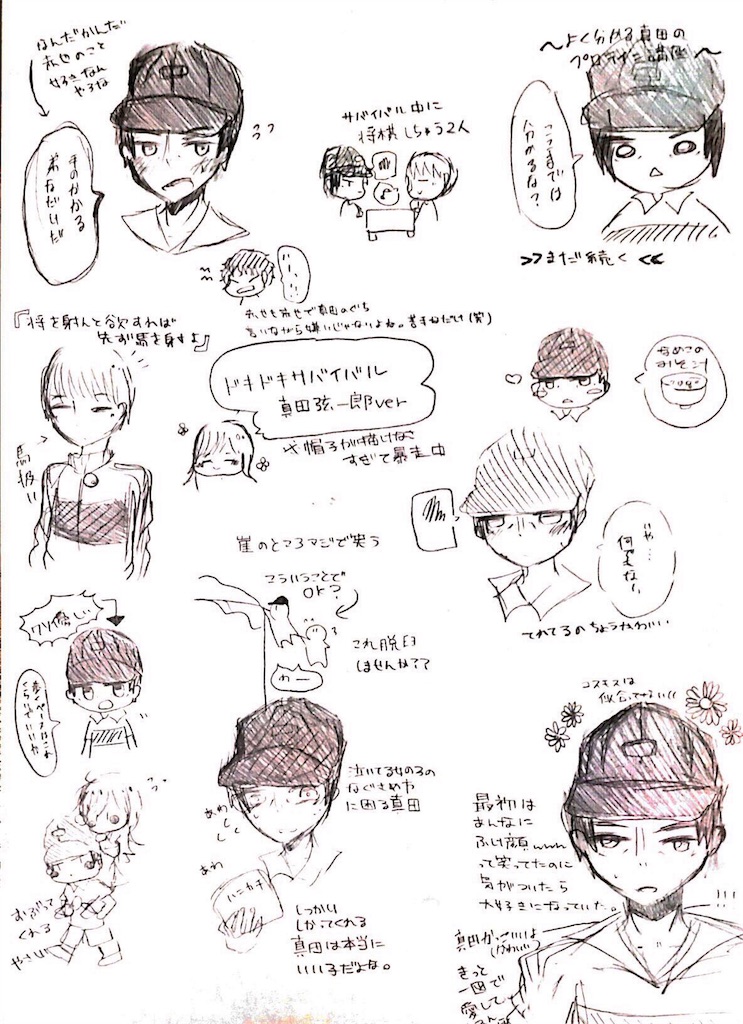 なんだかんだ
赤也のこと
好きなん
やろな
手のかかる
弟などいだ
サバイバル中に
将棋しちゅう2人
〜よく分かる真田の
講座〜
ここまでは
分かるな?
>>まだ続く<<
赤也も赤也で真田のぐち
言いながら嫌いじゃないよね。苦手なだけ(笑)
『将を射んと欲すれば
先ず馬を射すよ』
馬扱い
ドキドキサバイバル
真田弦一郎ver
※帽子が描けな
すぎて暴走中
なめこの
おみそ汁
いや…
何でもない
てれてるのちょうかわいい
崖のところマジで笑う
こういうことで
OK?
これ脱臼
はせんか??
わー
歩くペースはこれ
くらいでいいか
おぶって
くれる
やさしい
泣いてる女の子の
なぐさめ方
に困る真田
あわ
あわ
ハンカチ
しっかり
しかってくれる
真田は本当に
いい子だよな。
コスモスは
似合ってない((
最初は
あんなに
ふけ顔www
って笑ってたのに
気がついたら
大好きになっていた。
!!!
真田かっこいいよ
(かわいい)
きっと
一回で
愛して